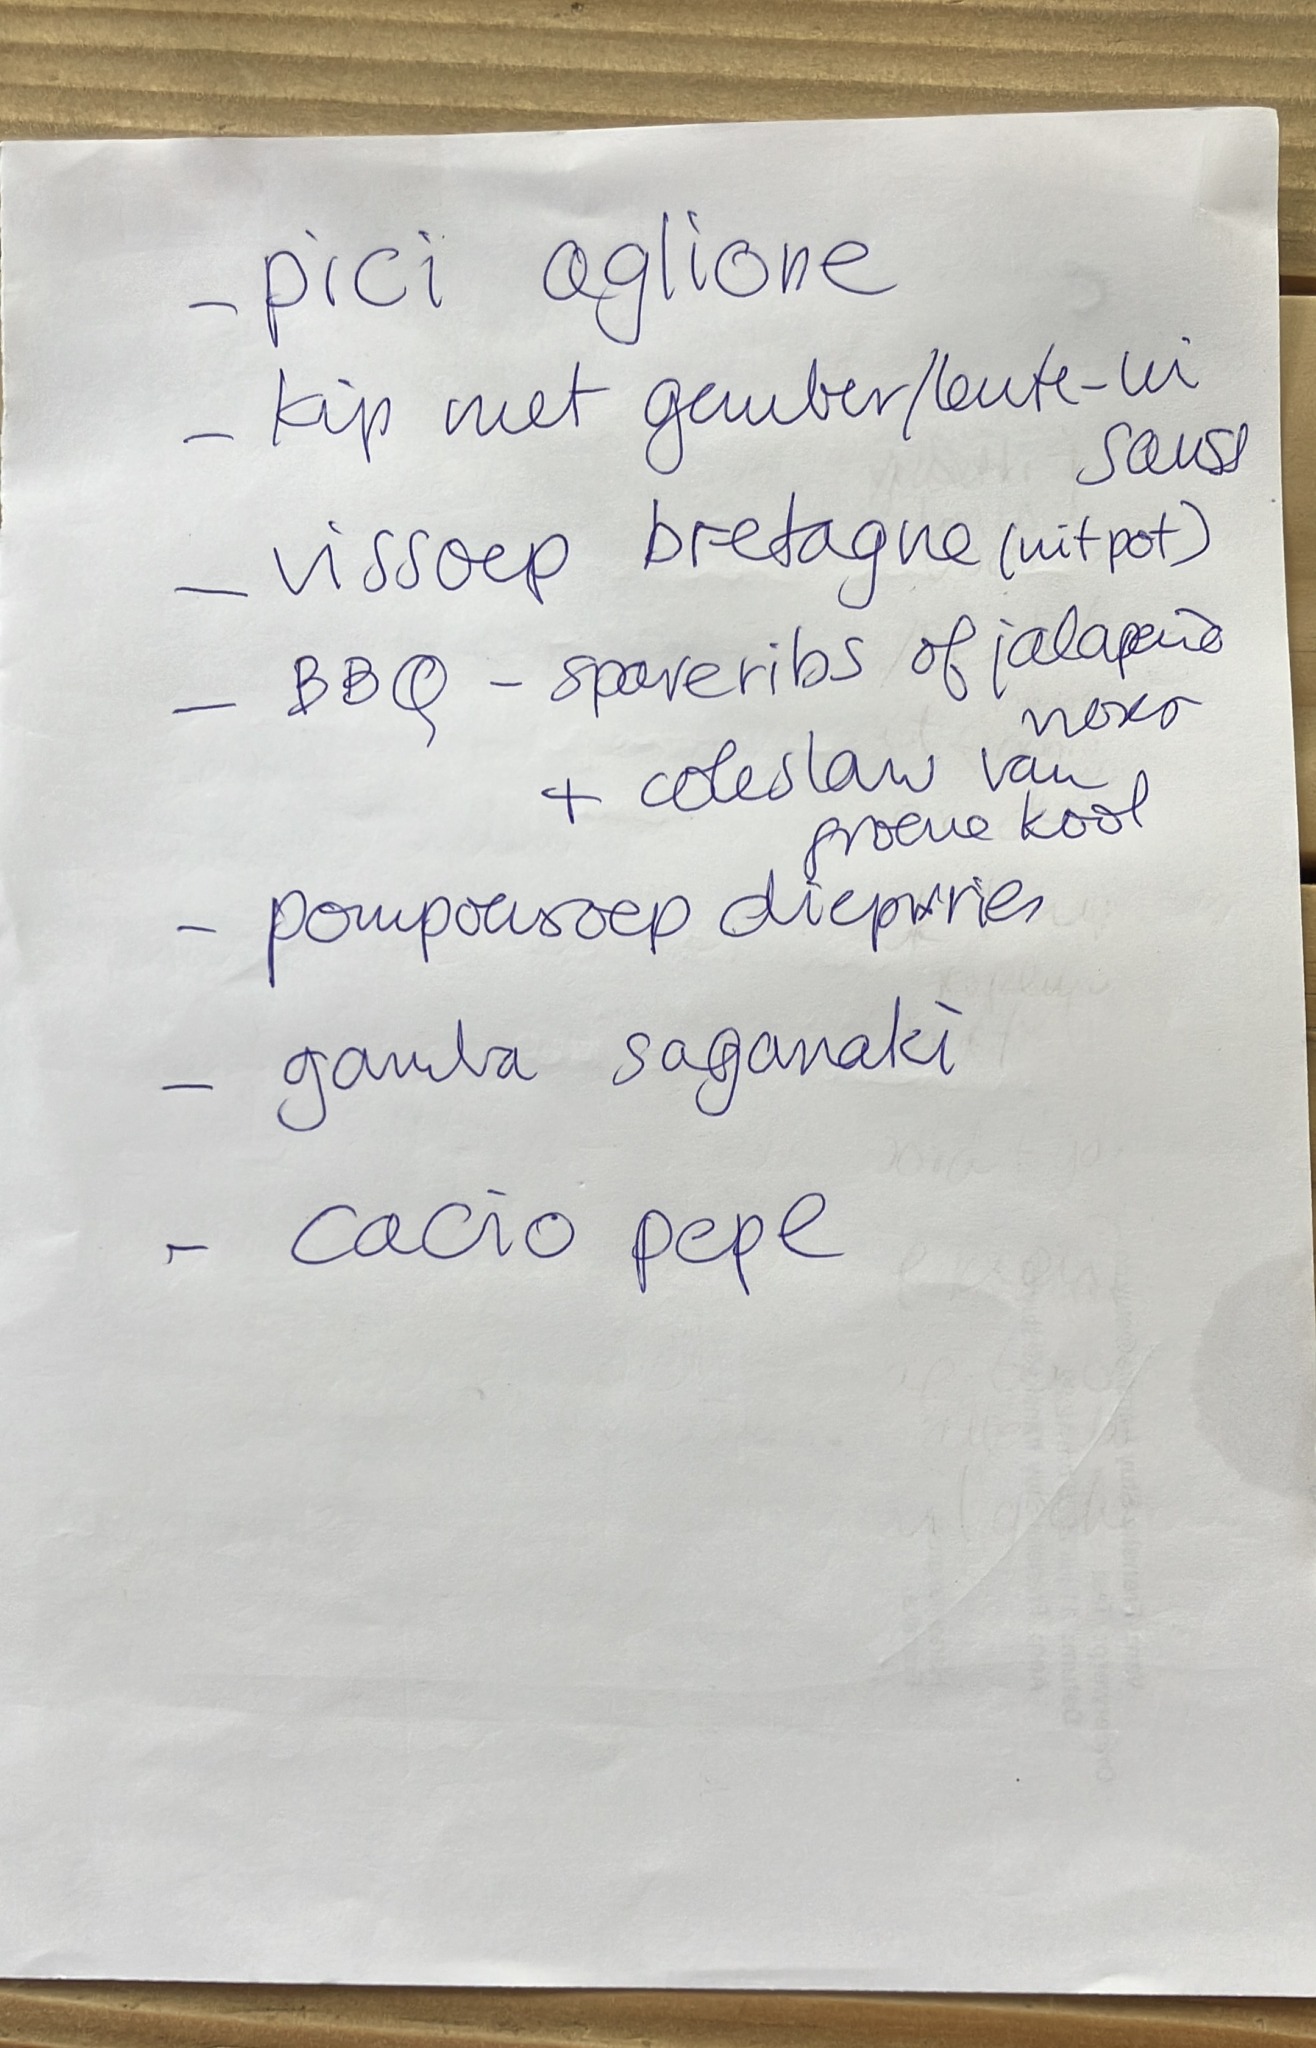 - pici aglione
- kip met gember/lente-ui
saus
- vissoep bretagne (uit pot)
- BBQ - spareribs of jalapeño
+ coleslaw van
groene kool
- pompoensoep diepvries
- gamba saganaki
- cacio pepe